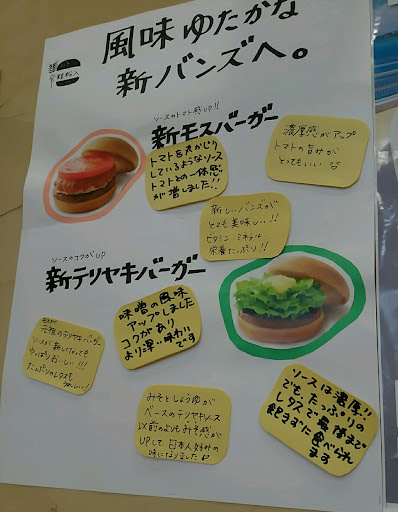 風味ゆたかな
新バンズへ。
ソースのトマト感UP!!
新モスバーガー
トマトを丸かじり
しているようなソース
トマトとの一体感
が増しました!!
濃厚感がアップ
トマトの旨みが
とってもいい
新しいバンズが
とても美味しい!!
ビタミン ミネラル
栄養たっぷり!!
ソースのコクがUP
新テリヤキバーガー
味噌の風味
アップしました
コクがあり
より深い味わい
です
元祖のテリヤキバーガー
ソースが新しくなっても
やっぱりおいしい!!!
たっぷりのレタスも
うれしい!
みそとしょうゆが
ベースのテリヤキソース
以前のよりもみそ感が
UPして、日本人好みの
味になりました
ソースは濃厚!!
でも、たっぷりの
レタスで最後まで
飽きずに食べられ
ます